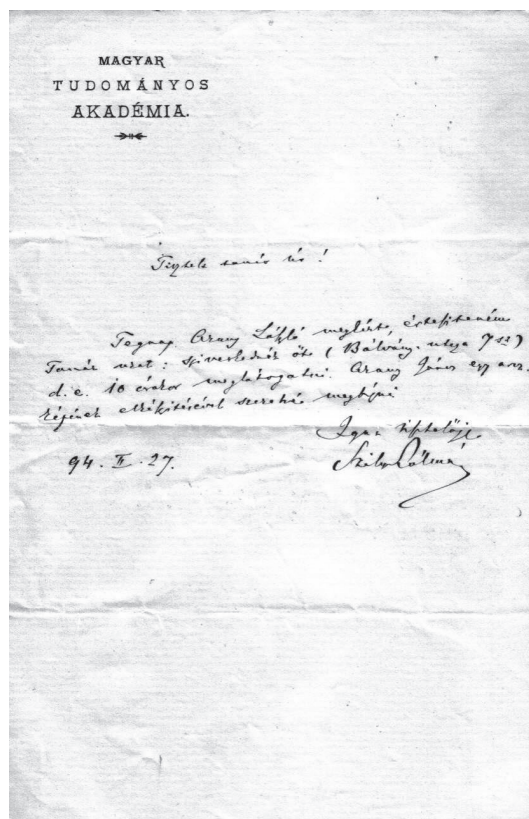 MAGYAR
TUDOMÁNYOS
AKADÉMIA.
Tisztelt tanár úr!
Tegnap Arany László megkért, értesíteném
Tanár urat: sziveskedjék őt (Bálvány-utcza 7 sz)
d. e. 10 órakor meglátogatni. Arany János egy arcz-
képének elkészitéséért szeretné megkérni
Igaz tisztelője
Szily Kálmán
94. II. 27.